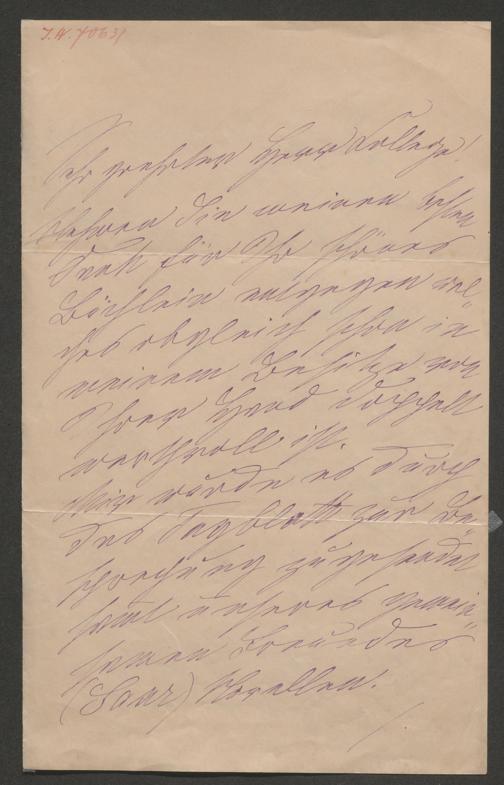 I.N. 70631
Sehr geehrter Herr College!
Nehmen Sie meinen besten
Dank für Ihr schönes
Büchlein entgegen wel-
ches obgleich schon in
meinem Besitze von
Ihrer Hand doppelt
werthvoll ist.
Mir wurde es durch
das Tagblatt zur Be-
sprechung zugesendet
samt unseres gemein-
samen Freundes
(Saar) Novellen.